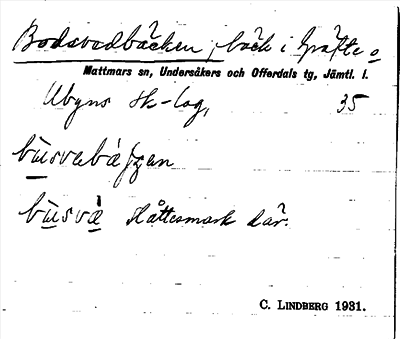 Bodsvedbäcken, bäck i Gräfte o
Mattmars sn, Undersåkers och Offerdals tg, Jämtl. l.
Ubyns sk-lag, 35
busvebäjʒen
busvè slåttesmark där.
C. LINDBERG 1931.